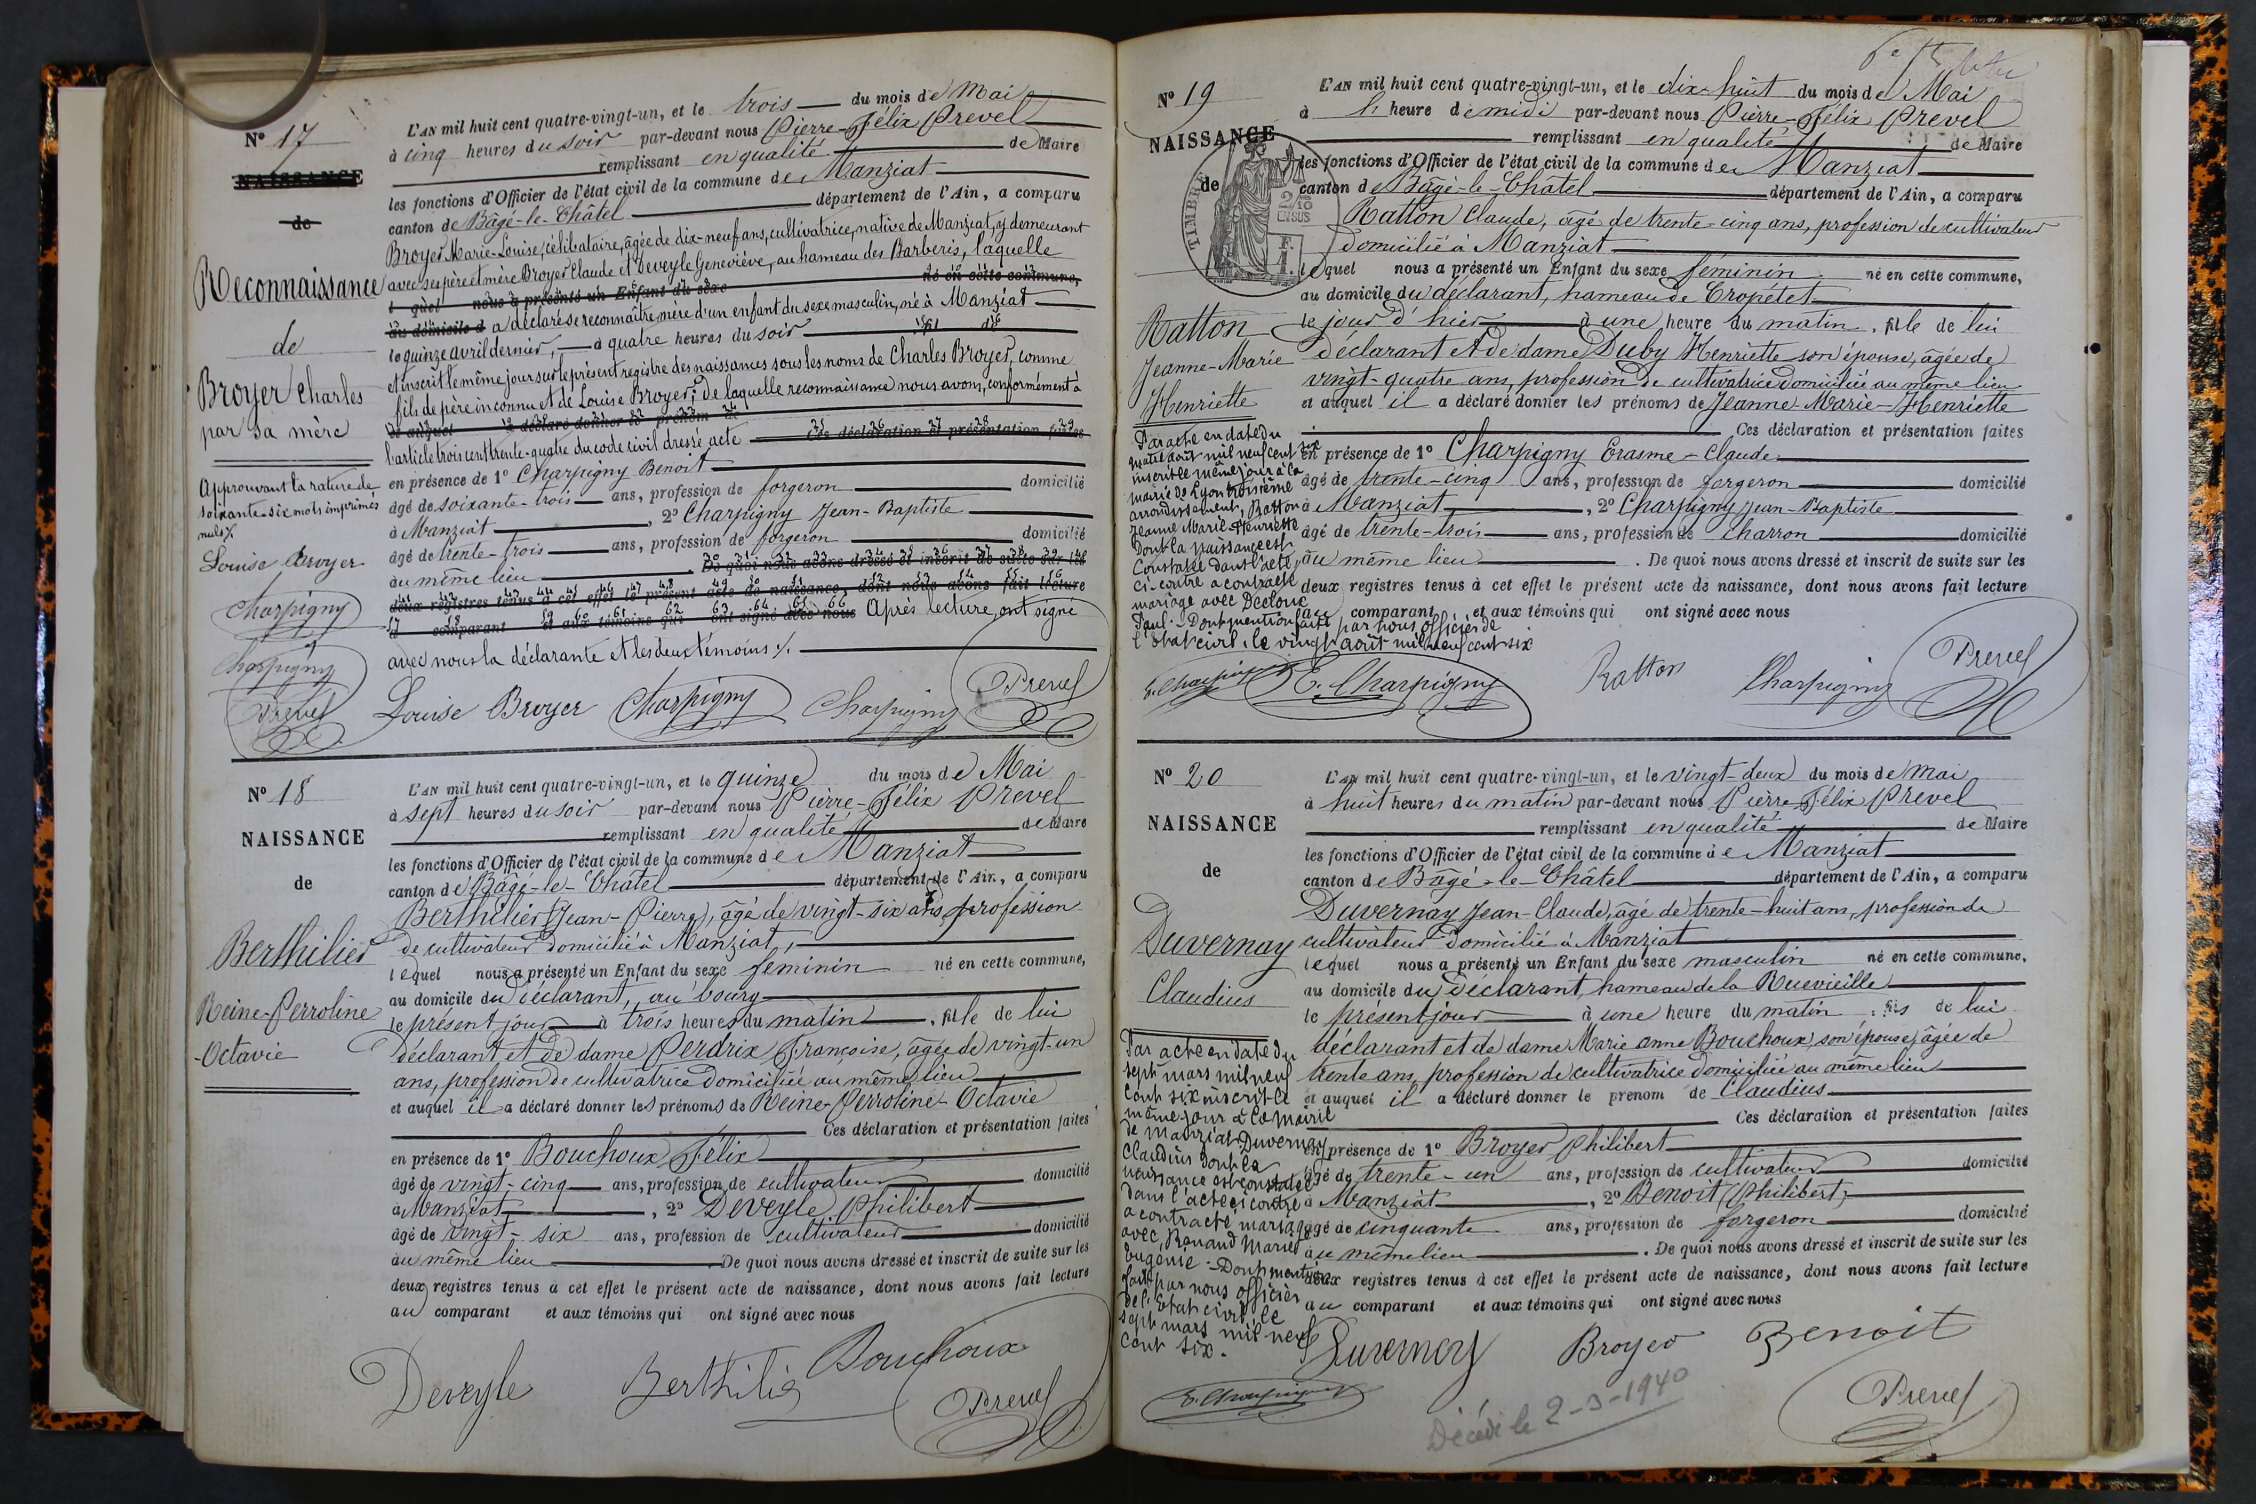 N° 17
NAISSANCE
de
Reconnaissance
de
Broyer Charles
par sa mère
Approuvant la rature de
soixante-six mots imprimés
nuls ./.
Louise Broyer
Charpigny
Charpigny
Prevel
L'AN mil huit cent quatre-vingt-un, et le trois du mois de Mai
à cinq heures du soir par-devant nous Pierre-Félix Prevel
remplissant en qualité de Maire
les fonctions d'Officier de l'état civil de la commune de Manziat
canton de Bâgé-le-Châtel département de l'Ain, a comparu
Broyer Marie-Louise, célibataire, âgée de dix-neuf ans, cultivatrice, native de Manziat, y demeurant
avec ses père et mère Broyer Claude et Deveyle Geneviève, au hameau des Barberis, laquelle
l quel nous a présenté un Enfant du sexe né en cette commune,
au domicile d a déclaré se reconnaître mère d'un enfant du sexe masculin, né à Manziat
le quinze avril dernier, à quatre heures du soir fil de
et inscrit le même jour sur le présent registre des naissances sous les noms de Charles Broyer, comme
fils de père inconnu et de Louise Broyer; de laquelle reconnaissance nous avons, conformément à
et auquel a déclaré donner le prénom de
l'article trois cent trente-quatre du code civil dressé acte Ces déclaration et présentation faites
en présence de 1° Charpigny Benoit
âgé de soixante-trois ans, profession de forgeron domicilié
à Manziat , 2° Charpigny Jean-Baptiste
âgé de trente-trois ans, profession de forgeron domicilié
au même lieu De quoi nous avons dressé et inscrit de suite sur les
deux registres tenus à cet effet le présent acte de naissance, dont nous avons fait lecture
comparant et aux témoins qui ont signé avec nous Après lecture, ont signé
avec nous la déclarante et les deux témoins ./.
Louise Broyer Charpigny Charpigny Prevel
N° 18
NAISSANCE
de
Berthilier
Reine-Perroline
-Octavie
L'AN mil huit cent quatre-vingt-un, et le quinze du mois de Mai
à sept heures du soir par-devant nous Pierre-Félix Prevel
remplissant en qualité de Maire
les fonctions d'Officier de l'état civil de la commune de Manziat
canton de Bâgé-le-Châtel département de l'Ain, a comparu
Berthilier (Jean-Pierre), âgé de vingt-six ans, profession
de cultivateur domicilié à Manziat,
lequel nous a présenté un Enfant du sexe féminin né en cette commune,
au domicile du déclarant, au bourg
le présent jour à trois heures du matin , fille de lui
déclarant et de dame Perdrix Françoise, âgée de vingt-un
ans, profession de cultivatrice domiciliée au même lieu
et auquel il a déclaré donner les prénoms de Reine-Perroline-Octavie
Ces déclaration et présentation faites
en présence de 1° Bouchoux Félix
âgé de vingt-cinq ans, profession de cultivateur domicilié
à Manziat , 2° Deveyle Philibert
âgé de vingt-six ans, profession de cultivateur domicilié
au même lieu De quoi nous avons dressé et inscrit de suite sur les
deux registres tenus à cet effet le présent acte de naissance, dont nous avons fait lecture
au comparant et aux témoins qui ont signé avec nous
Deveyle Berthilier Bouchoux
Prevel
N° 19
NAISSANCE
de
TIMBRE
2/10
EN SUS
F.
1.
Ratton
Jeanne-Marie
Henriette
Par acte en date du
quatre août mil neuf cent six
inscrit le même jour à la
mairie de Lyon troisième
arrondissement, Ratton
Jeanne Marie Henriette
dont la naissance est
constatée dans l'acte
ci-contre a contracté
mariage avec
Paul. Dont mention faite par nous officier de
l'état civil, le vingt août mil neuf cent six
L'AN mil huit cent quatre-vingt-un, et le dix-huit du mois de Mai
à h heure de midi par-devant nous Pierre-Félix Prevel
remplissant en qualité de Maire
les fonctions d'Officier de l'état civil de la commune de Manziat
canton de Bâgé-le-Châtel département de l'Ain, a comparu
Ratton Claude, âgé de trente-cinq ans, profession de cultivateur
domicilié à Manziat
lequel nous a présenté un Enfant du sexe féminin né en cette commune,
au domicile du déclarant, hameau de Cropétet
le jour d'hier à une heure du matin , fille de lui
déclarant et de dame Duby Henriette son épouse, âgée de
vingt-quatre ans, profession de cultivatrice domiciliée au même lieu
et auquel il a déclaré donner les prénoms de Jeanne-Marie-Henriette
Ces déclaration et présentation faites
en présence de 1° Charpigny Erasme-Claude
âgé de trente-cinq ans, profession de forgeron domicilié
à Manziat , 2° Charpigny Jean-Baptiste
âgé de trente-trois ans, profession de charron domicilié
au même lieu . De quoi nous avons dressé et inscrit de suite sur les
deux registres tenus à cet effet le présent acte de naissance, dont nous avons fait lecture
au comparant et aux témoins qui ont signé avec nous
E. Charpigny E. Charpigny Ratton Charpigny Prevel
N° 20
NAISSANCE
de
Duvernay
Claudius
Par acte en date du
sept mars mil neuf
cent six inscrit le
même jour à la mairie
de Manziat Duvernay
Claudius dont la
naissance est constatée
dans l'acte ci contre
a contracté mariage
avec Renaud Marie
Eugénie. Dont mention
faite par nous officier
de l'Etat civil, le
sept mars mil neuf
cent six.
E. Charpigny
L'AN mil huit cent quatre-vingt-un, et le vingt-deux du mois de Mai
à huit heures du matin par-devant nous Pierre Félix Prevel
remplissant en qualité de Maire
les fonctions d'Officier de l'état civil de la commune de Manziat
canton de Bâgé-le-Châtel département de l'Ain, a comparu
Duvernay Jean-Claude, âgé de trente-huit ans, profession de
cultivateur domicilié à Manziat
lequel nous a présenté un Enfant du sexe masculin né en cette commune,
au domicile du déclarant, hameau de la Ruevieille
le présent jour à une heure du matin , fils de lui
déclarant et de dame Marie anne Bouchoux, son épouse, âgée de
trente ans, profession de cultivatrice domiciliée au même lieu
et auquel il a déclaré donner le prénom de Claudius
Ces déclaration et présentation faites
en présence de 1° Broyer Philibert
âgé de trente-un ans, profession de cultivateur domicilié
à Manziat , 2° Benoit (Philibert)
âgé de cinquante ans, profession de forgeron domicilié
au même lieu . De quoi nous avons dressé et inscrit de suite sur les
deux registres tenus à cet effet le présent acte de naissance, dont nous avons fait lecture
au comparant et aux témoins qui ont signé avec nous
Duvernay Broyer Benoit
Prevel
Décédé le 2-3-1940